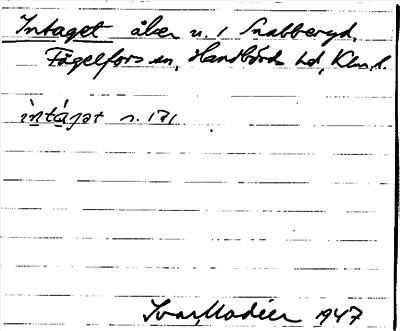 Intaget åker u. 1 Snabberyd,
Fågelfors sn, Handbörd hd, Klm. l.
ìntàgət s. 171
Ivar Modéer 1947